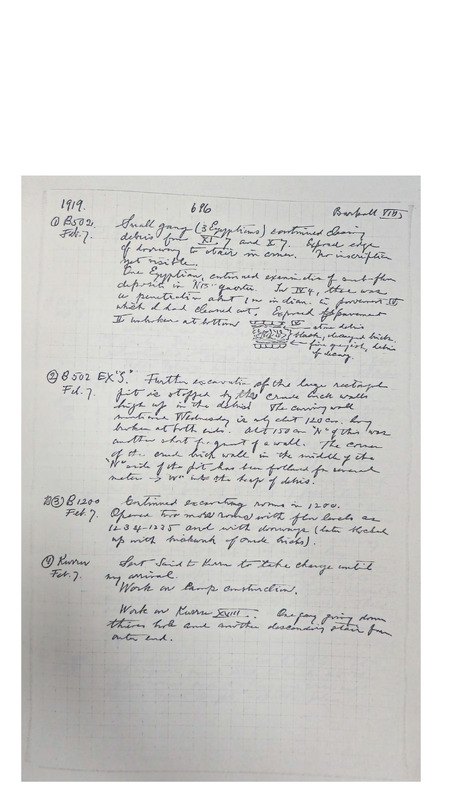 1919. 696 Barkal VIII
① B502. Small gang (3 Egyptians) continued clearing
Feb. 7. debris from XI-7 and X 7. Exposed edge
of doorway to stairs in corner. No inscription
yet visible.
One Egyptian, continued excavation of sub-floor
deposit in quarter. In IV 4, there was
a penetration about 1 m in diam. in pavement IV
which I had cleared out. Exposed pavement
II unbroken at bottom
IV
stone debris
black, decayed brick
debris
of decay.
② B 502 EX "S". Further excavation of the large rectangle
Feb. 7. pit is stopped by the crude brick walls
high up in the debris. The curving wall
mentioned Wednesday is only about 120 cm. long
broken at both ends. Abt 150 cm "N" of this was
another short fragment of a wall. The corner
of the crude brick wall in the middle of the
"N" side of the pit has been followed for several
meters "W" into the heap of debris.
③ B 1200 Continued excavating rooms in 1200.
Feb 7. Opened two more rooms with floor levels as
1234-1225 and with doorways (late blocked
up with brickwork of crude bricks).
④ Kurru Sent Said to Kurru to take charge until
Feb. 7. my arrival.
Work on Camp construction.
Work on Kurru XVIII. One gang going down
thieves hole and another descending stair from
outer end.